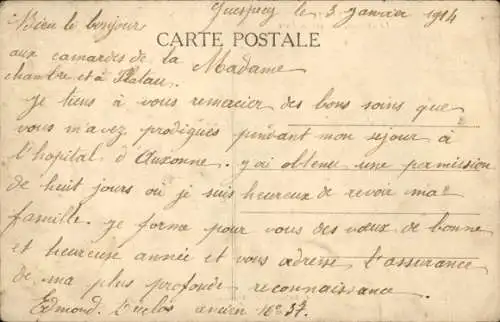 le 3 Janvier 1914
Bien le bonjour
aux camardes de la
chambre et à
CARTE POSTALE
Madame
Je tiens à vous remacier des bons soins que
vous m'avez prodigués pendant mon sejour à
l'hopital d'Auxonne. j'ai obtenu une permission
de huit jours où je suis heureux de revoir ma
famille. je forme pour vous des vœux de bonne
et heureuse année et vous adresse l'assurance
de ma plus profonde reconnaissance.
Edmond ancien 16e 37.